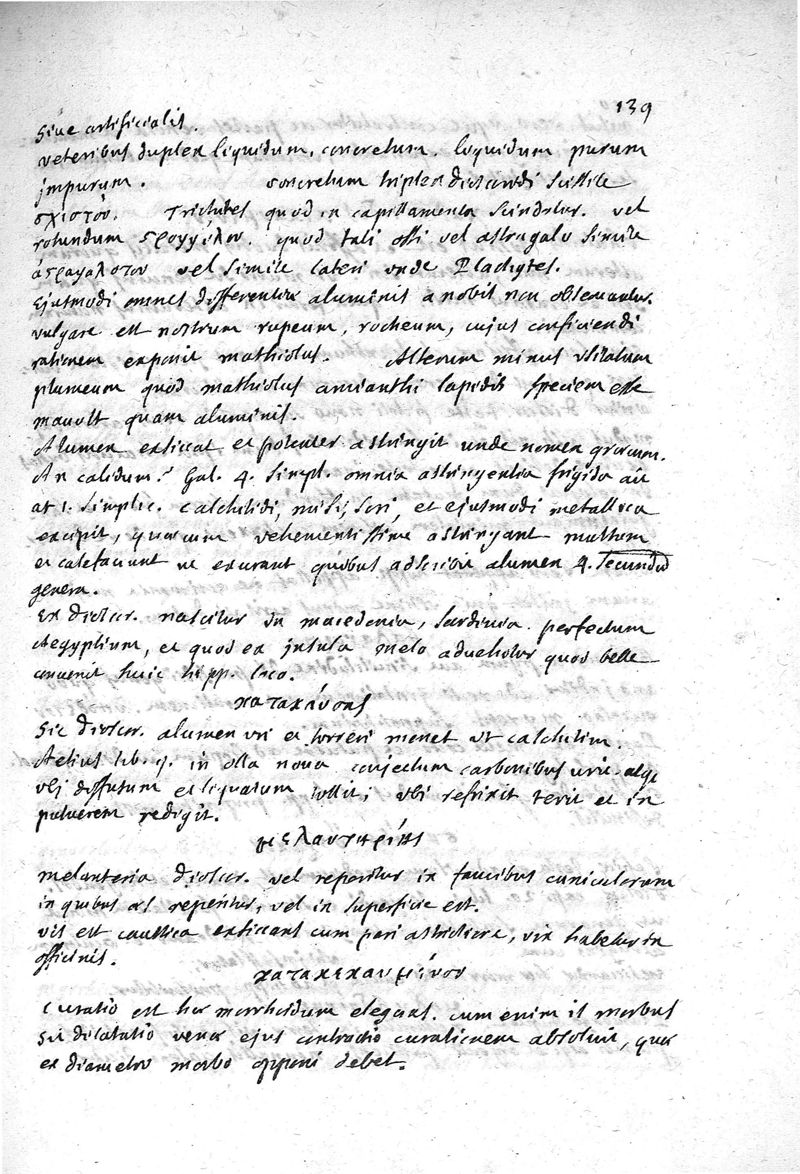 139
sive artificialis.
veteribus duplex liquidum, concretum. liquidum purum
impurum. concretum triplex dioscoridi scissile
σχιστόν. Trichites quod in capillamenta scinditur. vel
rotundum στρογγύλον. quod tali ossi vel astragalo simile
ἀστραγαλοτον vel simile lateri unde Plachytes.
Ejusmodi omnes differentiae aluminis a nobis non observantur.
vulgare est nostrum rupeum, rocheum, cujus conficiendi
rationem exponit mathiolus. Alterum minus usitatum
plumeum quod mathiolus amianthi lapidis speciem esse
mavult quam aluminis.
Alumen exsiccat et potenter astringit unde nomen graecum.
An calidum? Gal. 4. simpl. omnia astringentia frigida ait
at 1. simplic. calchitidi, misi, sori, et ejusmodi metallica
excipit, quae cum vehementissime astringant multum
et calefaciunt ut exurant quibus adscribi alumen 4. secundum
genera.
Ex dioscor. nascitur in macedonia, sardinia. perfectum
Aegyptium, et quod ex insula melo advehitur quod belle
convenit huic hipp. loco.
κατακαύσας
Sic dioscor. alumen uri et torreri monet ut calchitim.
Aetius lib. 9. in olla nova conjectum carbonibus urit
ubi diffusum et liquatum tollit; ubi refrixit terit et in
pulverem redigit.
μελαντηρίης
melanteria dioscor. vel reperitur in faucibus cuniculorum
in quibus aes reperitur, vel in superficie est.
vis est caustica exsiccans cum pari astrictione, vix habetur in
officinis.
κατακεκαυμένου
Curatio est haemorrhoidum elegans. cum enim is morbus
sit dilatatio venae ejus contractio curationem absolvit, quae
ex diametro morbo opponi debet.